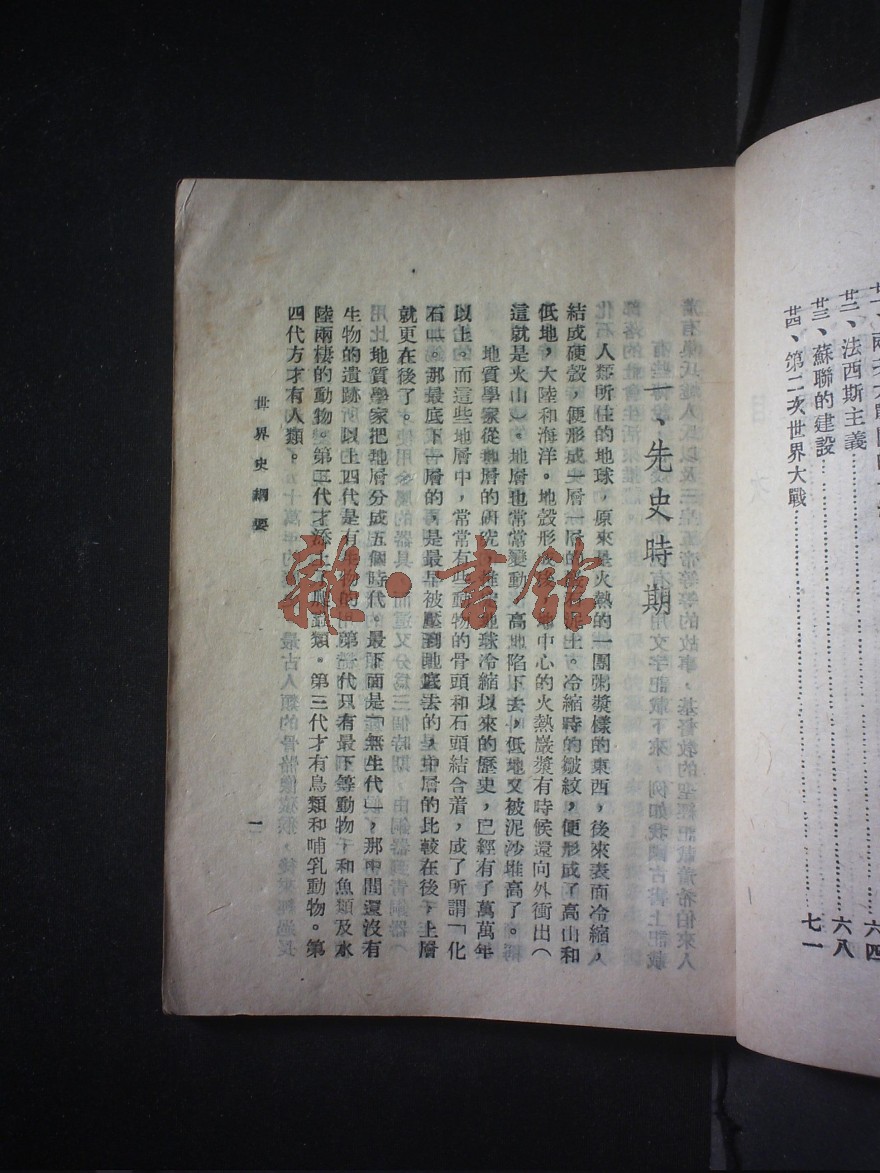 法西斯主義
卅三、蘇聯的建設 六八
卅四、第二次世界大戰 七一
一、先史時期
人類所住的地球，原來是火熱的一團粥漿樣的東西，後來表面冷縮，
結成硬殼，便形成一層一層的土。冷縮時的皺紋，便形成了高山和
低地，大陸和海洋。地殼形成中心的火熱巖漿有時候還向外衝出（
這就是火山）。地層也常常變動，高地陷下去，低地又被泥沙堆高了。
地質學家從地層的研究，推知地球冷縮以來的歷史，已經有了萬萬年
以上。而這些地層中，常常有些動物的骨頭和石頭結合着，成了所謂「化
石」。那最底下一層的，是最早被壓到地底去的，中層的比較在後，上層
就更在後了。
地質學家把地層分成五個時代。最下面是「無生代」，那中間還沒有
生物的遺跡。以上四代是有生物的。第一代只有最下等動物，和魚類及水
陸兩棲的動物。第二代才添上爬蟲類。第三代才有鳥類和哺乳動物。第
四代方才有人類。
世界史綱要
一
雜·書館